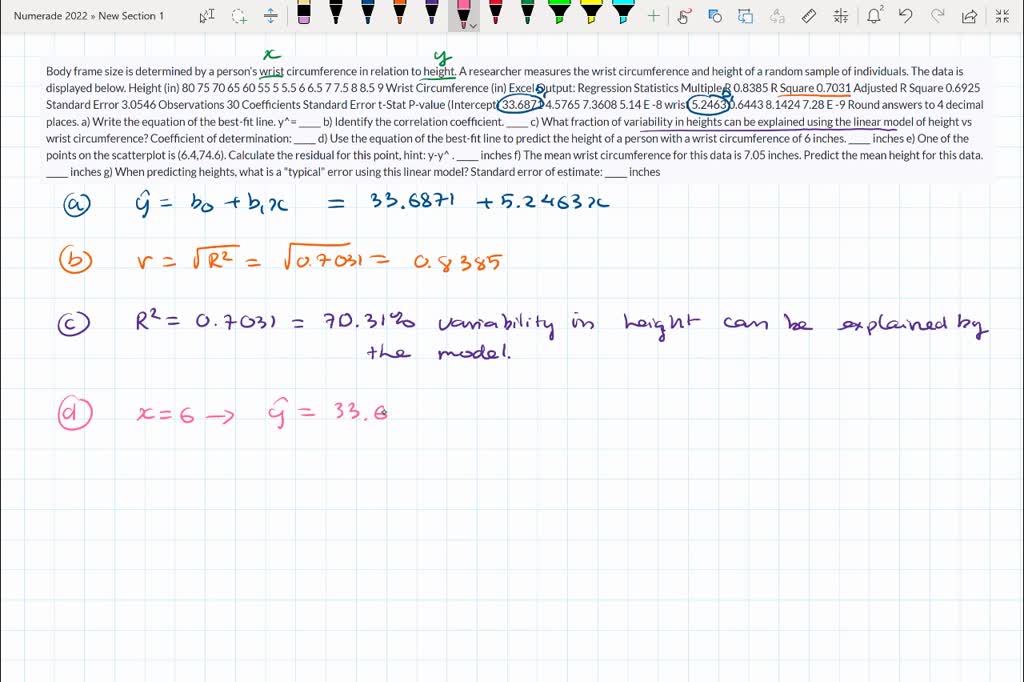 Numerade 2022 » New Section 1
x y
Body frame size is determined by a person's wrist circumference in relation to height. A researcher measures the wrist circumference and height of a random sample of individuals. The data is
displayed below. Height (in) 80 75 70 65 60 55 5 5.5 6 6.5 7 7.5 8 8.5 9 Wrist Circumference (in) Excel Output: Regression Statistics Multiple R 0.8385 R Square 0.7031 Adjusted R Square 0.6925
Standard Error 3.0546 Observations 30 Coefficients Standard Error t-Stat P-value (Intercept) 33.6871 4.5765 7.3608 5.14 E -8 wrist 5.2463 0.6443 8.1424 7.28 E -9 Round answers to 4 decimal
places. a) Write the equation of the best-fit line. y^= ____ b) Identify the correlation coefficient. ____ c) What fraction of variability in heights can be explained using the linear model of height vs
wrist circumference? Coefficient of determination: ____ d) Use the equation of the best-fit line to predict the height of a person with a wrist circumference of 6 inches. ____ inches e) One of the
points on the scatterplot is (6.4,74.6). Calculate the residual for this point, hint: y-y^ . ____ inches f) The mean wrist circumference for this data is 7.05 inches. Predict the mean height for this data.
____ inches g) When predicting heights, what is a "typical" error using this linear model? Standard error of estimate: ____ inches
(a) ŷ = b₀ + b₁x = 33.6871 + 5.2463x
(b) r = √R² = √0.7031 = 0.8385
(c) R² = 0.7031 = 70.31% variability in height can be explained by
the model.
(d) x = 6 → ŷ = 33.6